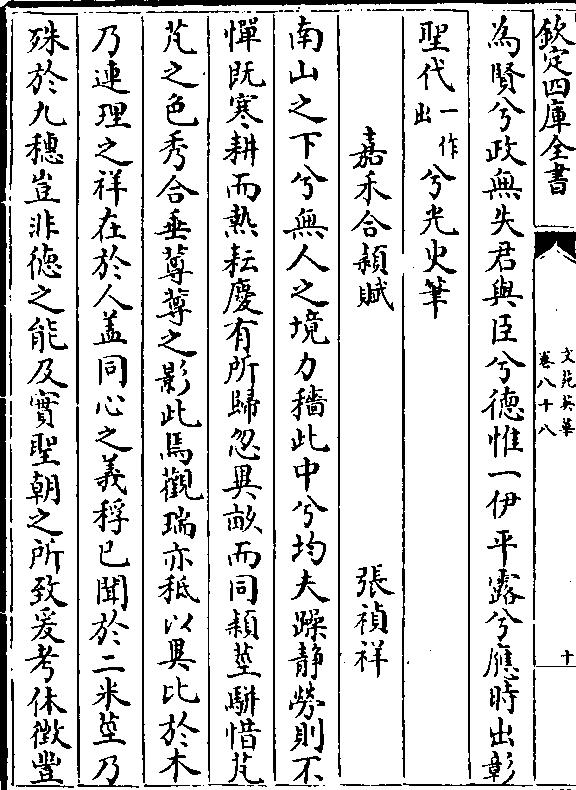 欽定四庫全書
文苑英華
卷八十八
十
為賢兮政無失君與臣兮德惟一伊平露兮應時出彰
聖代一作出兮光史筆
嘉禾合穎賦 張禎祥
南山之下兮無人之境力穡此中兮均夫躁静勞則不
憚既寒耕而熱耘慶有所歸忽異畝而同穎莖駢惜芃
芃之色秀合垂蓴蓴之影此焉觀瑞亦秪以異比於木
乃連理之祥在於人盖同心之義稃已聞於二米莖乃
殊於九穗豈非徳之能及實聖朝之所致爰考休徴豐